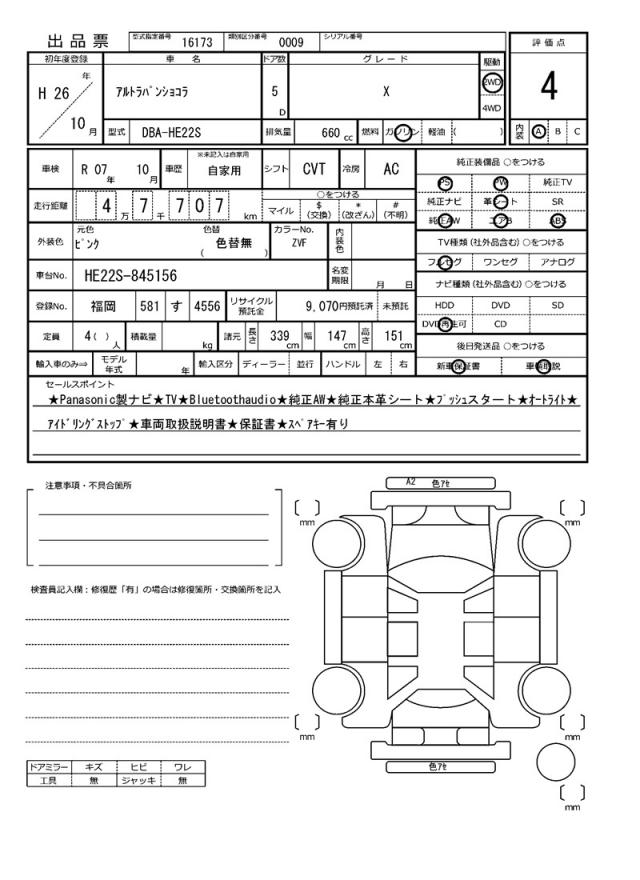 出品票 型式指定番号 16173 類別区分番号 0009 シリアル番号
評価点
4
内装 A B C
初年度登録 車名 ドア数 グレード 駆動
H 26 年 10 月 アルトラパンショコラ 5 D X 2WD 4WD
型式 DBA-HE22S 排気量 660 cc 燃料 ガソリン 軽油 ( )
車検 R 07 年 10 月 車歴 ※未記入は自家用 自家用 シフト CVT 冷房 AC
走行距離 4 万 7 千 707 km
○をつける
マイル $(交換) *(改ざん) #(不明)
外装色 元色 ピンク 色替 ( 色替無 ) カラーNo. ZVF 内装色
車台No. HE22S-845156 名変期限 月 日
登録No. 福岡 581 す 4556 リサイクル預託金 9,070円預託済 未預託
定員 4( ) 人 積載量 kg 諸元 長さ 339 cm 幅 147 cm 高さ 151 cm
輸入車のみ⇒ モデル年式 年 輸入区分 ディーラー 並行 ハンドル 左 右
純正装備品 ○をつける
PS PW 純正TV
純正ナビ 革シート SR
純正AW エアB ABS
TV種類(社外品含む)○をつける
フルセグ ワンセグ アナログ
ナビ種類(社外品含む)○をつける
HDD DVD SD
DVD再生可 CD
後日発送品 ○をつける
新車保証書 車輌取説
セールスポイント
★Panasonic製ナビ★TV★Bluetoothaudio★純正AW★純正本革シート★プッシュスタート★オートライト★
アイドリングストップ★車両取扱説明書★保証書★スペアキー有り
注意事項・不具合箇所
検査員記入欄：修復歴「有」の場合は修復箇所・交換箇所を記入
A2 色アセ
mm
mm
mm
mm
色アセ
mm
ドアミラー キズ ヒビ ワレ
工具 無 ジャッキ 無